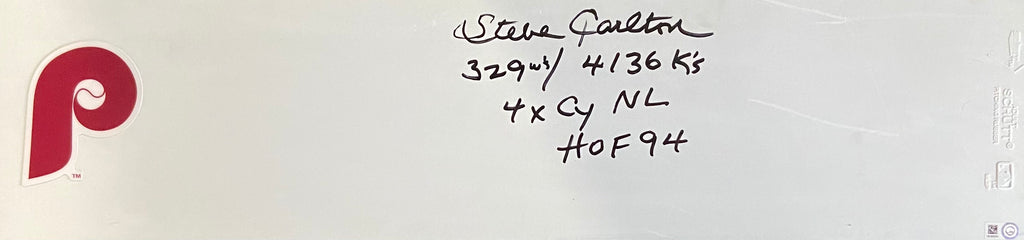 Steve Carlton
329 w's/ 4136 K's
4x Cy NL
HOF 94
TM